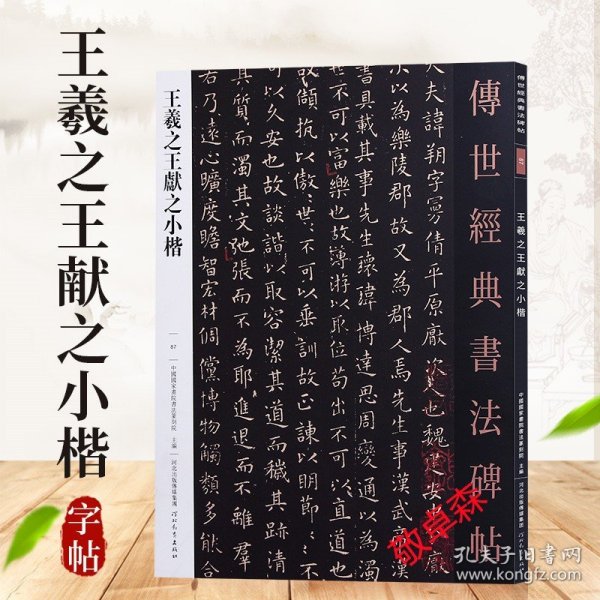 王羲之王献之小楷
字帖
王羲之王獻之小楷
87
中國國家書院書法篆刻院 主編
河北出版傳媒集團
河北教育出版社
大夫諱朔字曼倩平原厭次人也魏建安中分厭
次以為樂陵郡故又為郡人焉先生事漢武帝漢
書具載其事先生瓌瑋博達思周變通以為
不可以富樂也故薄遊以取位苟出不可以直道也
故頡抗以傲世不可以垂訓故正諫以明節
不可以久安也故談諧以取容潔其道而穢其跡清
其質而濁其文弛張而不為耶進退而不離群
若乃遠心曠度贍智宏材倜儻博物觸類多能合
傳世經典書法碑帖
傳世經典書法碑帖
87
王羲之王獻之小楷
中國國家書院書法篆刻院 主編
河北出版傳媒集團
河北教育出版社
敬卓森
孔夫子旧书网
www.kongfz.com